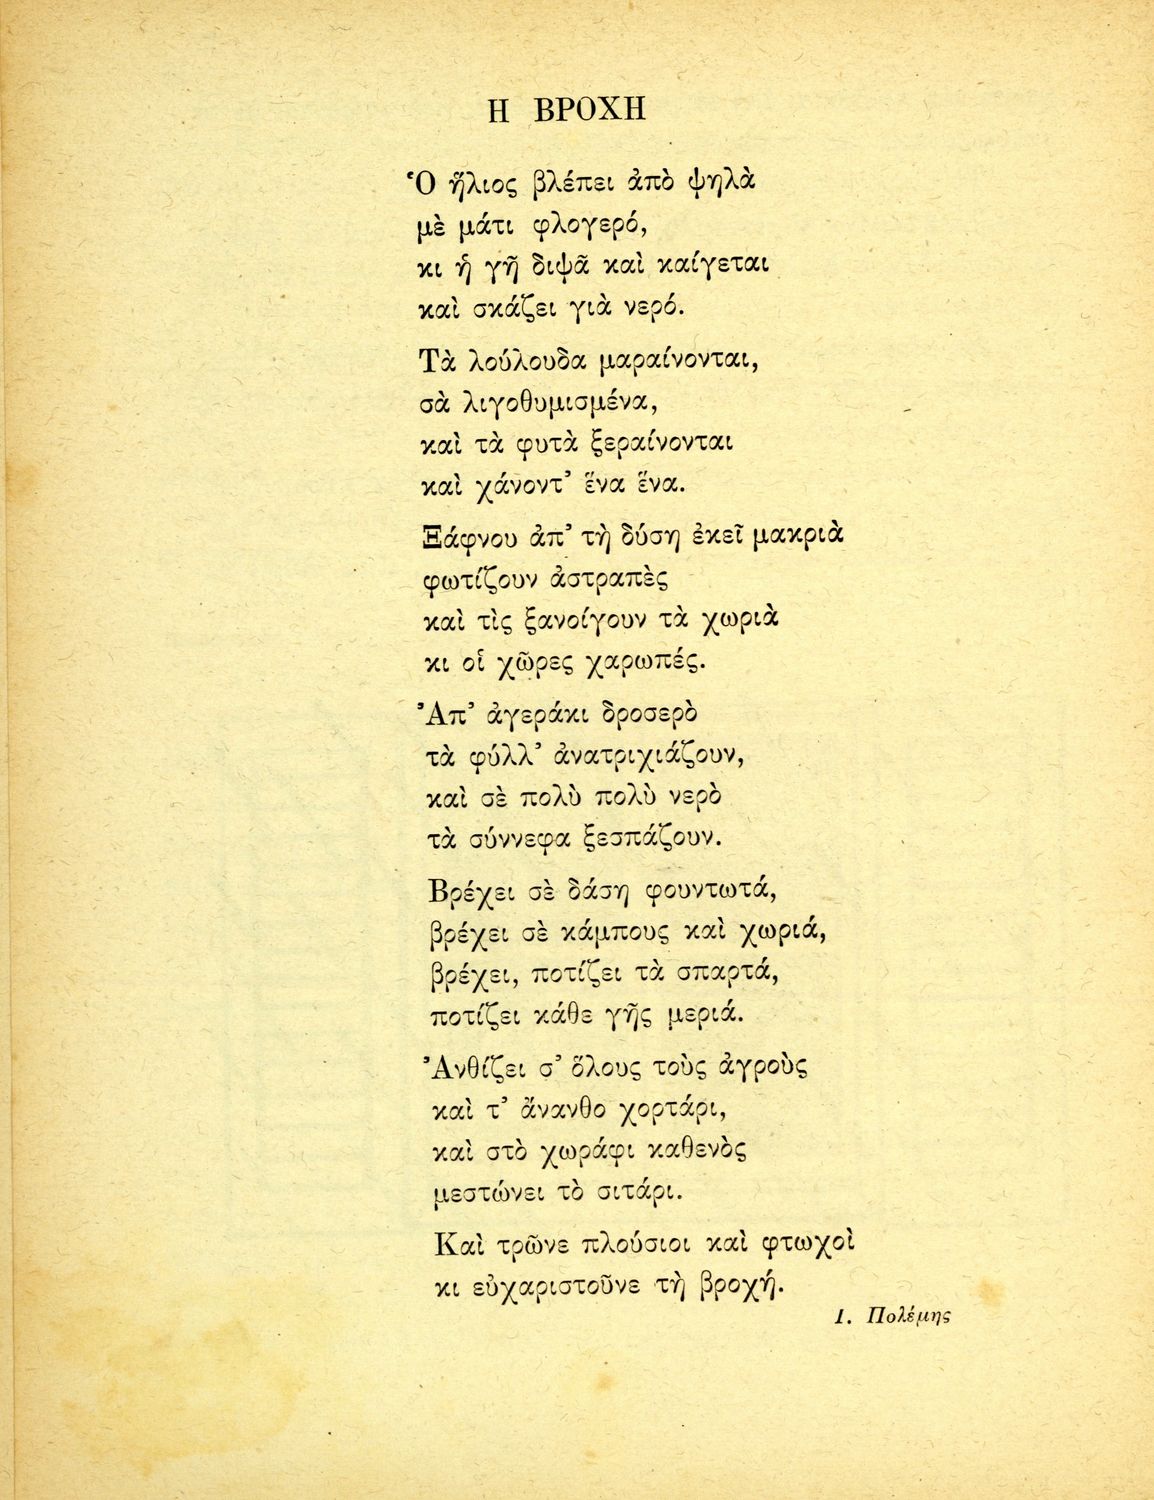 Η ΒΡΟΧΗ
Ὁ ἥλιος βλέπει ἀπὸ ψηλὰ
μὲ μάτι φλογερό,
κι ἡ γῆ διψᾶ καὶ καίγεται
καὶ σκάζει γιὰ νερό.
Τὰ λούλουδα μαραίνονται,
σὰ λιγοθυμισμένα,
καὶ τὰ φυτὰ ξεραίνονται
καὶ χάνοντ’ ἕνα ἕνα.
Ξάφνου ἀπ’ τὴ δύση ἐκεῖ μακριὰ
φωτίζουν ἀστραπὲς
καὶ τὶς ξανοίγουν τὰ χωριὰ
κι οἱ χῶρες χαρωπές.
Ἀπ’ ἀγεράκι δροσερὸ
τὰ φύλλ’ ἀνατριχιάζουν,
καὶ σὲ πολὺ πολὺ νερὸ
τὰ σύννεφα ξεσπάζουν.
Βρέχει σὲ δάση φουντωτά,
βρέχει σὲ κάμπους καὶ χωριά,
βρέχει, ποτίζει τὰ σπαρτά,
ποτίζει κάθε γῆς μεριά.
Ἀνθίζει σ’ ὅλους τοὺς ἀγροὺς
καὶ τ’ ἄνανθο χορτάρι,
καὶ στὸ χωράφι καθενὸς
μεστώνει τὸ σιτάρι.
Καὶ τρῶνε πλούσιοι καὶ φτωχοὶ
κι εὐχαριστοῦνε τὴ βροχή.
Ι. Πολέμης